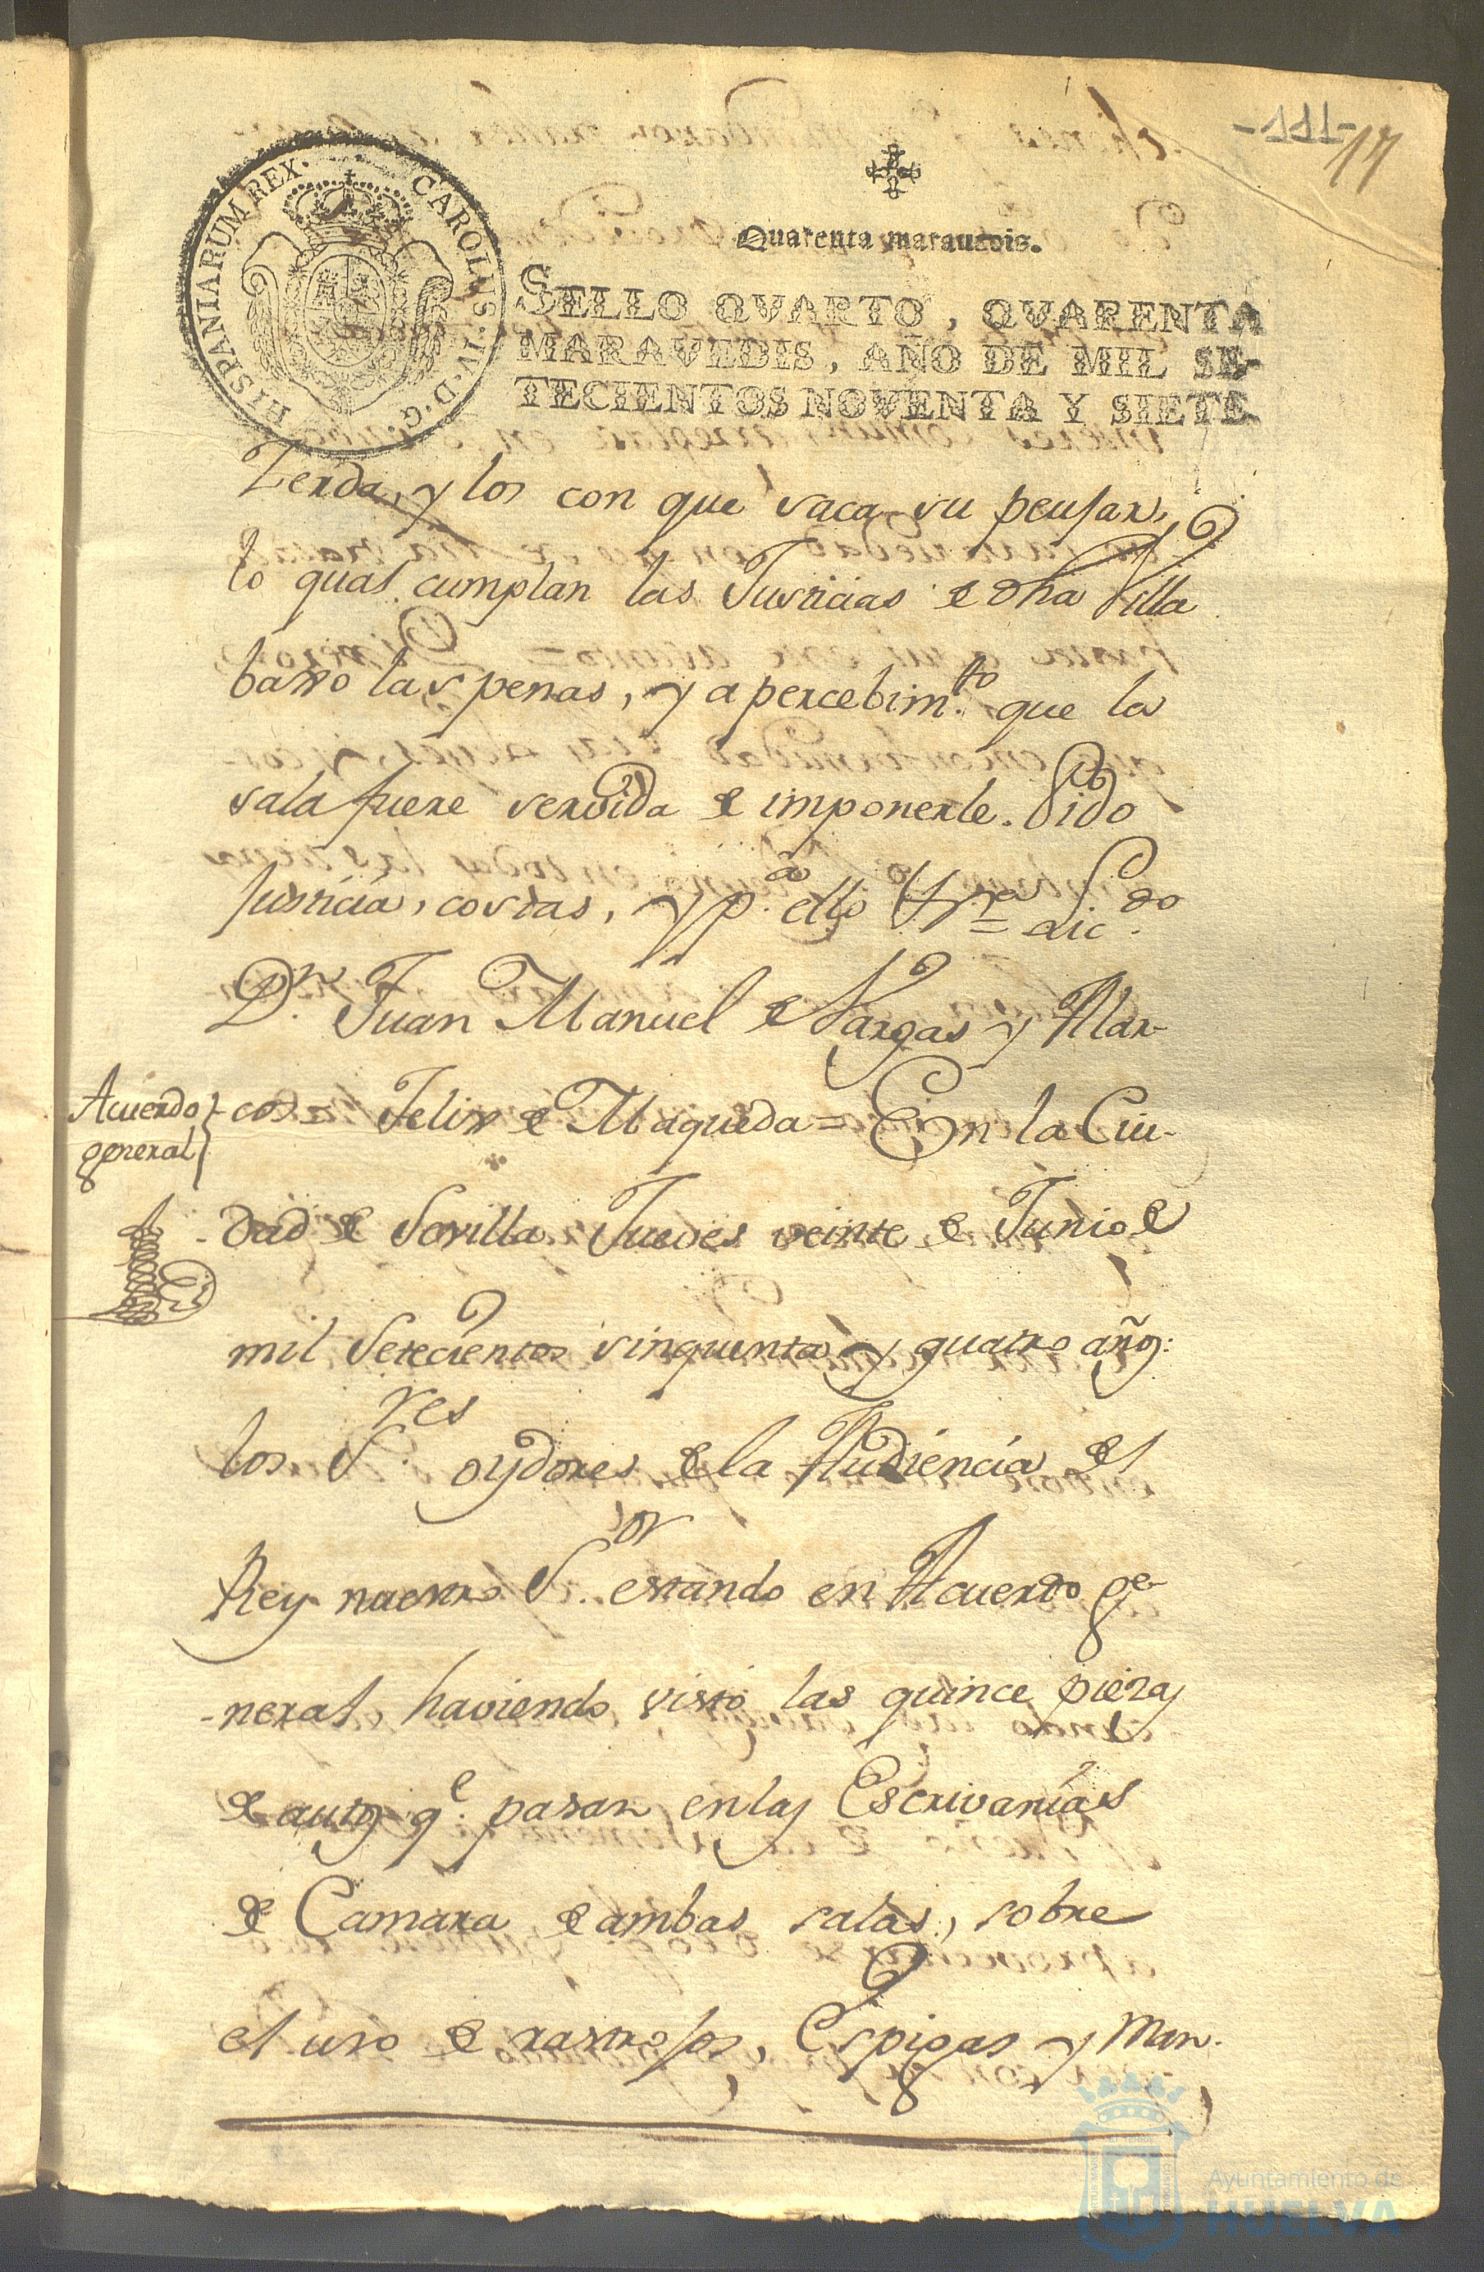 -177-
17
HISPANIARUM REX. CAROLUS. IV. D. G.
Quarenta marauedis.
SELLO QVARTO, QVARENTA
MARAVEDIS, AÑO DE MIL SE-
TECIENTOS NOVENTA Y SIETE
Zerda, y los con que saca su pegujar,
lo qual cumplan las Justicias de dha Villa
baxo las penas, y apercebimto. que la
sala fuere servida de imponerle. Pido
Justicia, costas, y pa. ello = Licdo.
Dn. Juan Manuel de Vargas y Mar-
Acuerdo
general
cos = Felix de Maqueda = En la Ciu-
-dad de Sevilla Jueves veinte de Junio de
mil Setecientos sinquenta y quatro años:
los Sres. oydores de la Audiencia del
Rey nuestro Sor. estando en Acuerdo ge-
-neral, haviendo visto las quince piezas
de autos qe. pasan en las Escrivanías
de Camara de ambas salas, sobre
el uso de rastrojos, Espigas y Man-
Ayuntamiento de
HUELVA